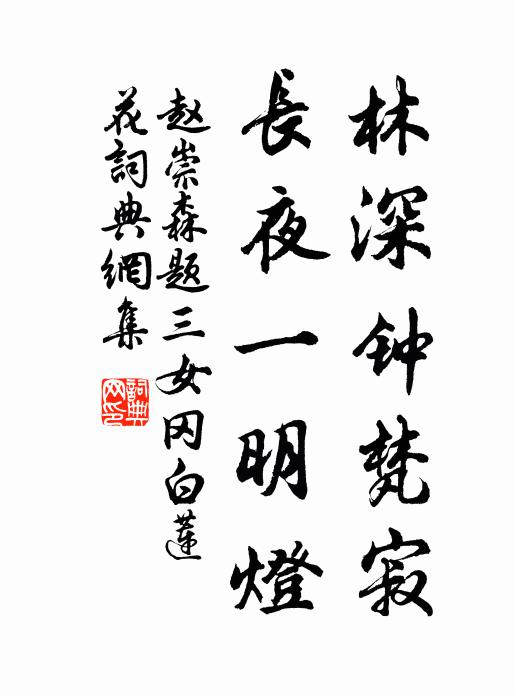 林深钟梵寂
長夜一明燈
赵崇森题三女冈白莲
花詞典網集
詞典网印